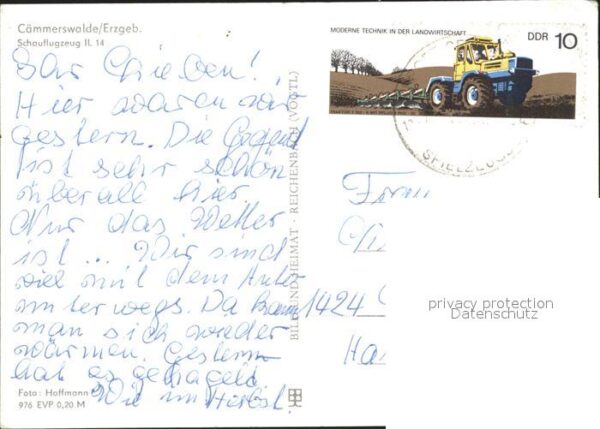 Cämmerswalde/Erzgeb.
Schauflugzeug IL 14
Ihr Lieben!
Hier waren wir
gestern. Die Gegend
ist sehr schön
überall hier.
Nur das Wetter
ist ... Wir sind
viel mit dem Auto
unterwegs. Da kann
man sich wieder
wärmen. Gestern
hat es gehagelt
Wie im Herbst!
Foto: Hoffmann
976 EVP 0,20 M
BILD UND HEIMAT · REICHENBACH (VOGTL)
MODERNE TECHNIK IN DER LANDWIRTSCHAFT
DDR 10
SPIELZEUG
Firma
1424
Ha
privacy protection
Datenschutz